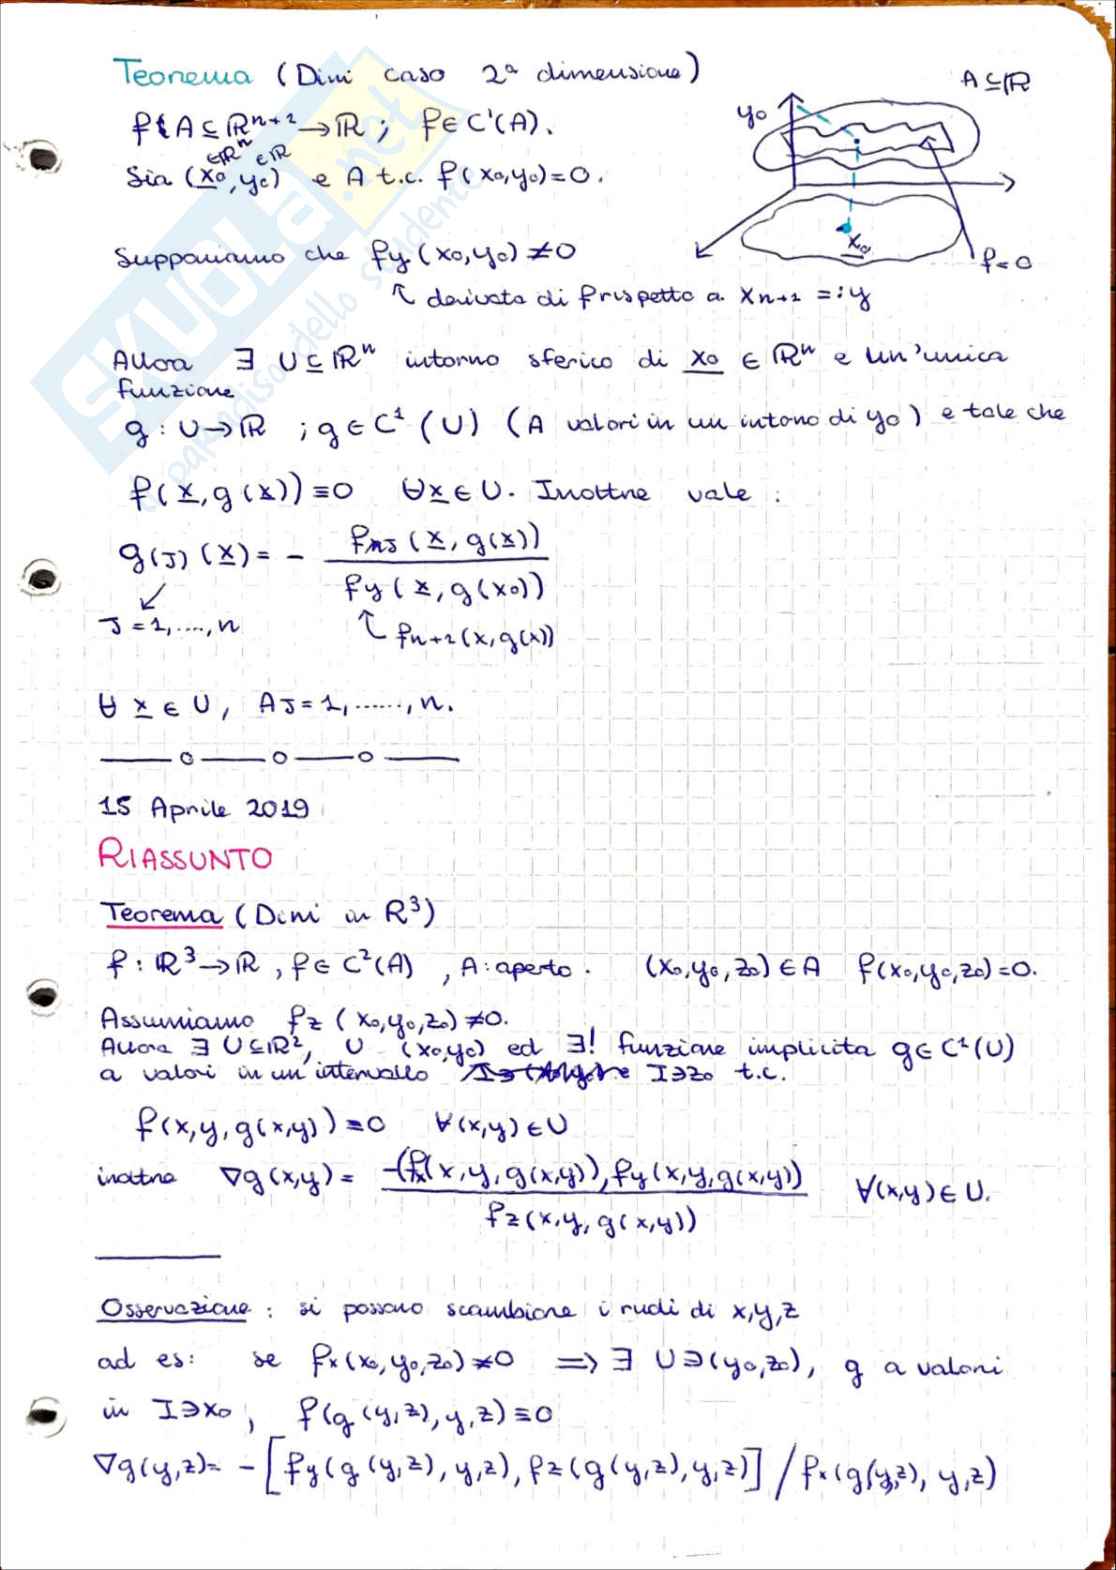 Teorema (Dini caso 2ª dimensione)
f: A ⊆ ℝⁿ⁺¹ → ℝ ; f ∈ C¹(A).
∈ℝⁿ ∈ℝ
Sia (x₀, y₀) ∈ A t.c. f(x₀,y₀)=0.
A ⊆ ℝ
y₀
x₀
f=0
Supponiamo che fy(x₀,y₀) ≠ 0
↖ derivata di f rispetto a xₙ₊₁ =: y
Allora ∃ U ⊆ ℝⁿ intorno sferico di x₀ ∈ ℝⁿ e un'unica
funzione
g : U → ℝ ; g ∈ C¹(U) (A valori in un intono di y₀) e tale che
f(x, g(x)) ≡ 0 ∀x ∈ U. Inoltre vale :
g(J)(x) = - fxJ(x, g(x)) / fy(x, g(x₀))
J = 1, ...., n
↖ fn+1(x, g(x))
∀ x ∈ U, ∀J = 1, ......, n.
15 Aprile 2019
RIASSUNTO
Teorema (Dini in R³)
f : ℝ³ → ℝ , f ∈ C¹(A) , A: aperto . (x₀,y₀,z₀) ∈ A f(x₀,y₀,z₀)=0.
Assumiamo fz(x₀,y₀,z₀) ≠ 0.
Allora ∃ U ⊆ ℝ², U (x₀,y₀) ed ∃! funzione implicita g ∈ C¹(U)
a valori in un'intervallo I∋z₀ t.c.
f(x,y,g(x,y)) = 0 ∀(x,y) ∈ U
inoltre ∇g(x,y) = -(fx(x,y,g(x,y)), fy(x,y,g(x,y)) / fz(x,y,g(x,y)) ∀(x,y) ∈ U.
Osservazione : si possono scambiare i ruoli di x,y,z
ad es: se fx(x₀,y₀,z₀) ≠ 0 ⟹ ∃ U∋(y₀,z₀), g a valori
in I∋x₀ , f(g(y,z), y,z) ≡ 0
∇g(y,z) = - [fy(g(y,z), y,z), fz(g(y,z), y,z)] / fx(g(y,z), y,z)
SKUOLA.net
il paradiso dello studente